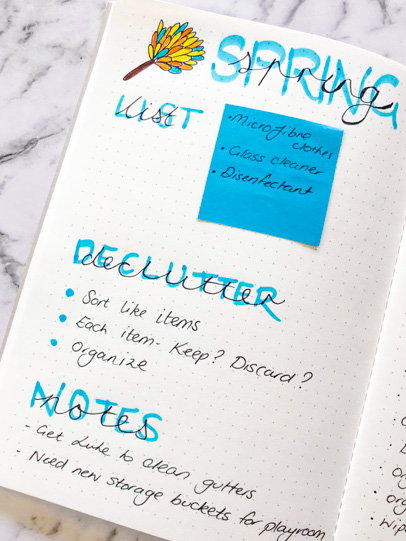 SPRING
spring
LIST
list
• Microfibre
clothes
• Glass cleaner
• Disenfectant
DECLUTTER
declutter
• Sort like items
• Each item - Keep? Discard?
• Organize
NOTES
notes
- Get Luke to clean gutters
- Need new storage buckets for playroom